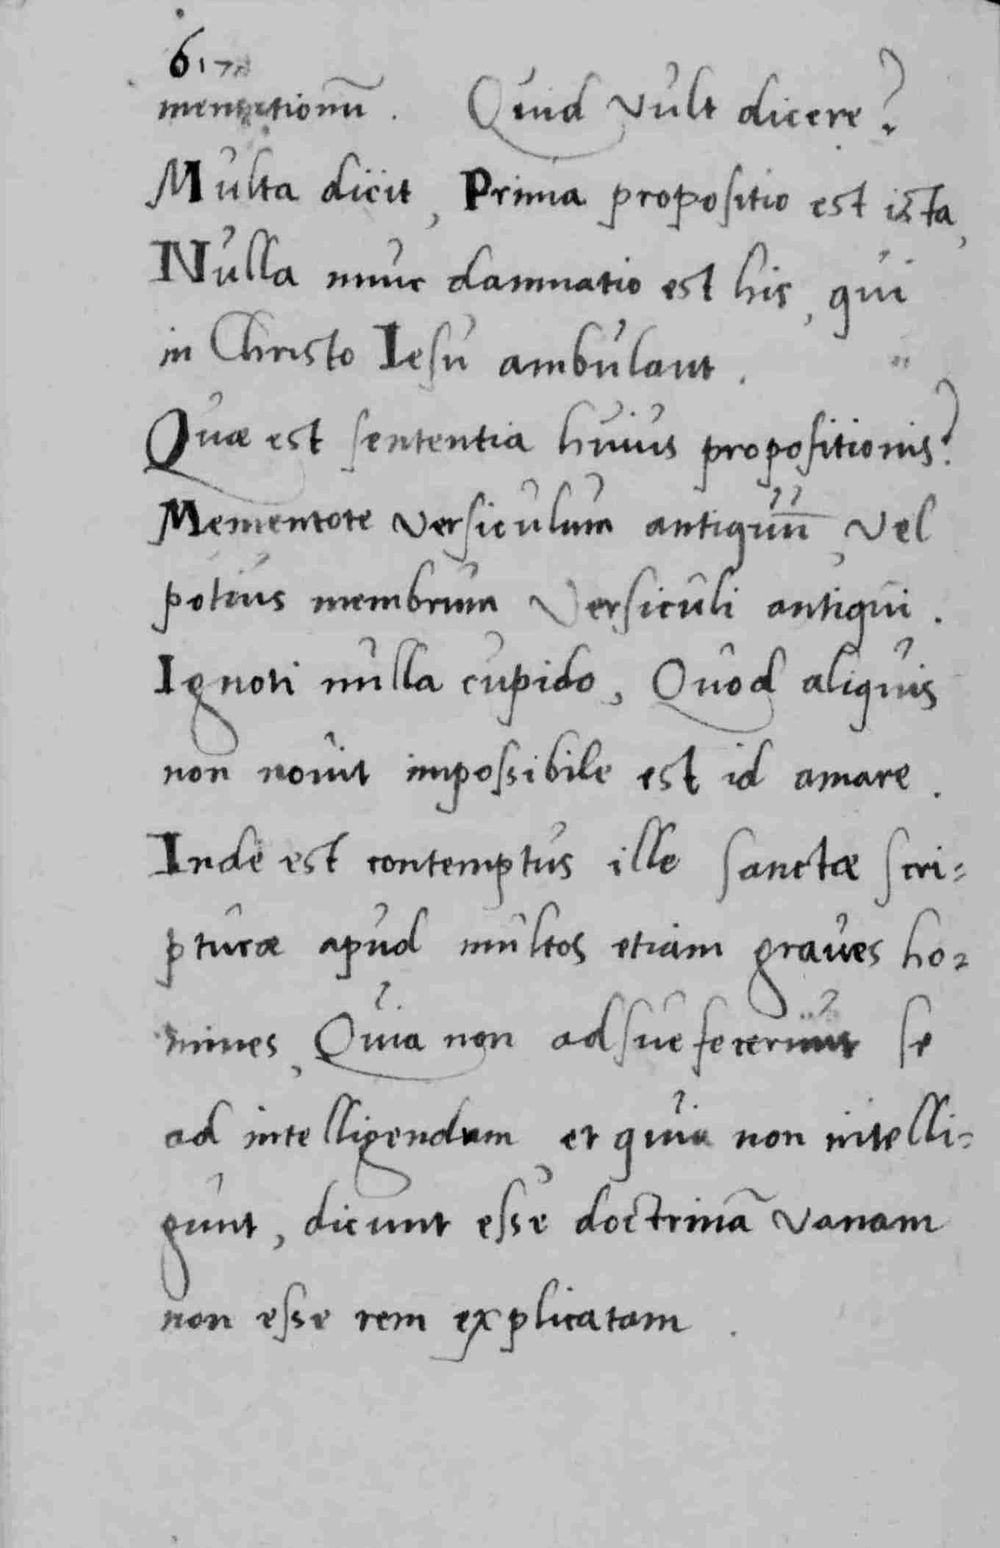 mentationū. Quid vult dicere?
Multa dicit, Prima propositio est ista,
Nulla nunc damnatio est his, qui
in Christo Iesu ambulant.
Quae est sententia huius propositionis?
Mementote versiculum antiquū, vel
potius membrum versiculi antiqui.
Ignoti nulla cupido, Quod aliquis
non nouit impossibile est id amare.
Inde est contemptus ille sanctae scri=
pturae apud multos etiam graues ho=
mines, Quia non adsuefecerunt se
ad intelligendum, et quia non intelli=
gunt, dicunt esse doctrinā vanam
non esse rem explicatam.